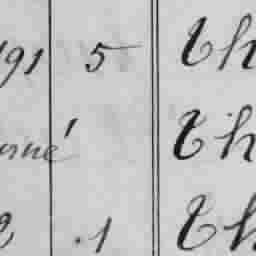 191 5 Th
rné Th
2 .1 Th